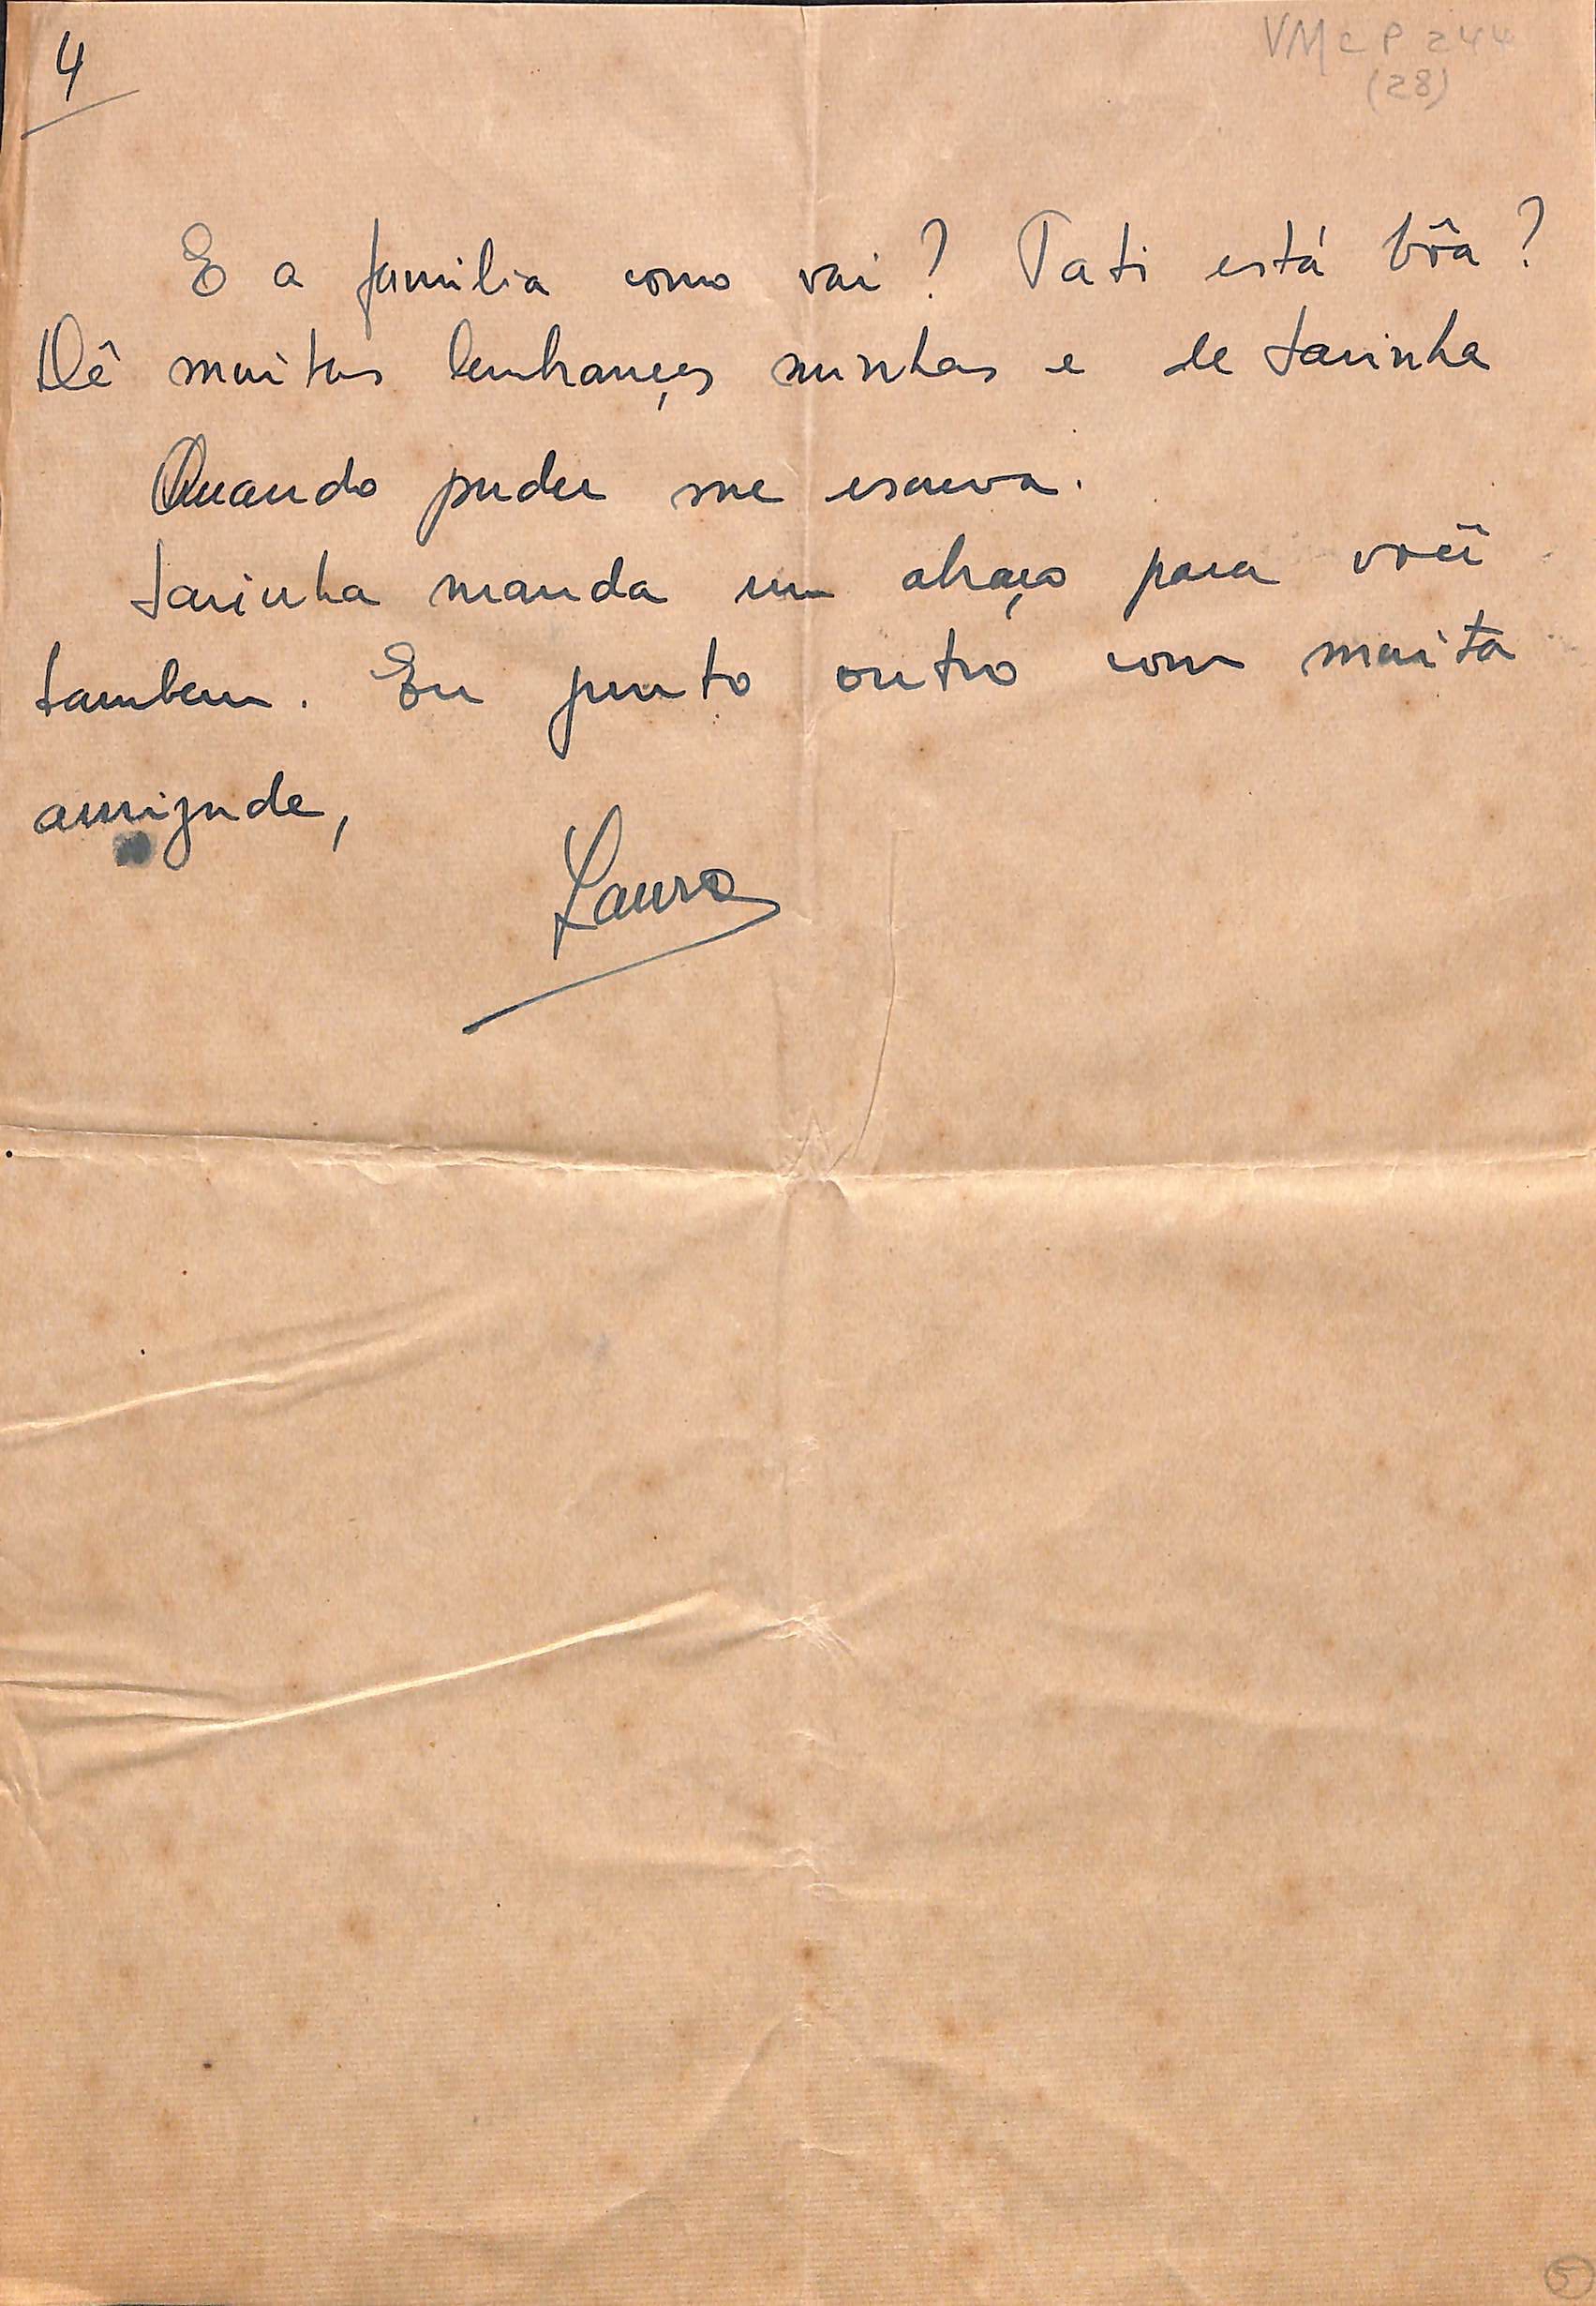 4
VMcP 244
(28)
E a familia como vai? Tati está bôa?
Dê muitas lembranças minhas e de Sarinha
Quando puder me escreva.
Sarinha manda um abraço para você
tambem. Eu junto outro com muita
amizade,
Lauro
5